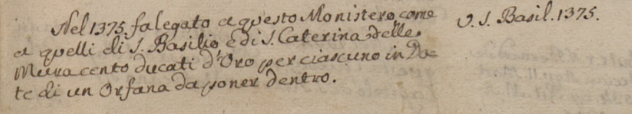 Nel 1375. fa legato a questo Monistero, come
a quelli di S. Basilio, e di S. Caterina delle
Mura cento ducati d'Oro per ciascuno in Do-
te di un Orfana da poner dentro.
V. S. Basil. 1375.